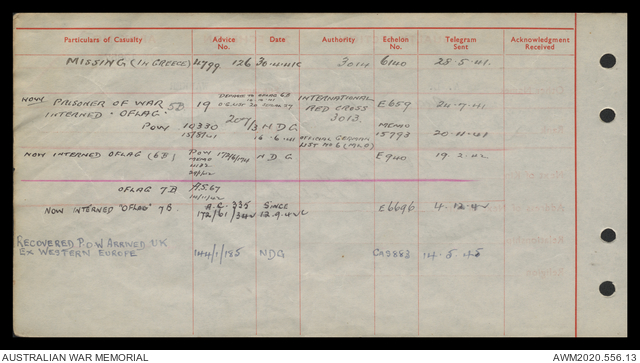 Particulars of Casualty Advice No. Date Authority Echelon No. Telegram Sent Acknowledgment Received
MISSING (IN GREECE) 4799 126 30.4.41C 3014 6140 28.5.41.
NOW PRISONER OF WAR 5B 19 INTERNATIONAL E659 24.7.41
INTERNED "OFLAG" RED CROSS
3013.
POW 14330 207/3 NDG MEMO
16.6.41 OFFICIAL GERMAN 15793 20.11.41
LIST NO 6 (MLO)
NOW INTERNED OFLAG (6B) POW 172/6/1741 NDG E940 19.2.42
MEMO
OFLAG 7B A.567
NOW INTERNED "OFLAG" 7B A.C. 335 SINCE E6696 4.12.42
172/61/342 12.9.42
RECOVERED P.O.W ARRIVED UK
EX WESTERN EUROPE 144/1/185 NDG CA9883 14.5.45
AUSTRALIAN WAR MEMORIAL AWM2020.556.13